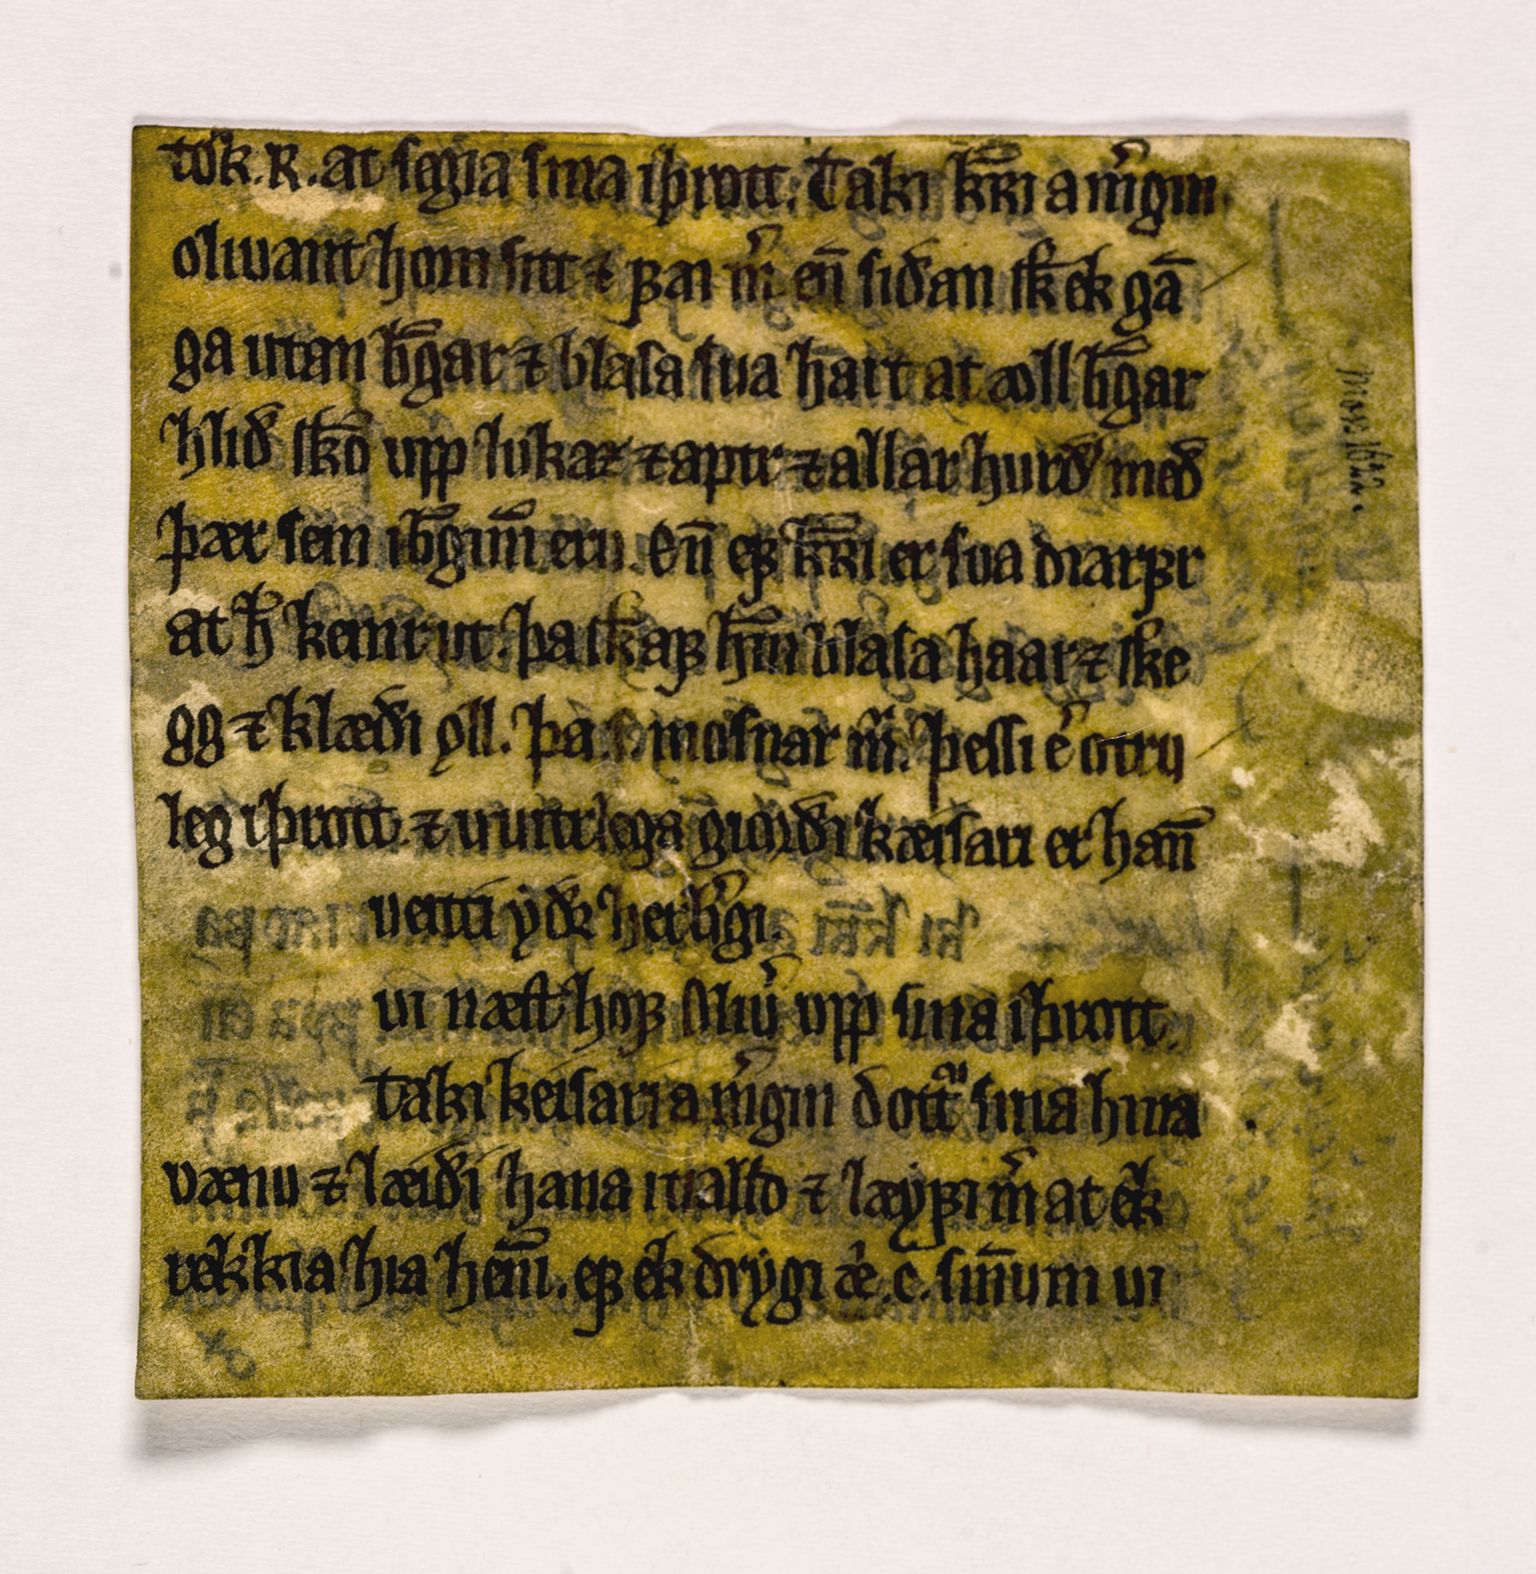 tok. R. at sęgia sina iþrott. Taki k̅r̅i a m͛gin
oliuant horn sitt ⁊ ꝼai m͛ en̅ siðan sk̅ ek ga̅
ga utan b̅gar ⁊ blasa sua hatt at ꜵll b̅gar
hlið sko̅ upp lukaz ⁊ aptr ⁊ allar hurð með
þær sem i b̅ginu̅ eru. En̅ eꝼ k̅r̅i er sua diarꝼr
at h̅ kemr ut. þa sk̅ aꝼ h̅m blasa haar ⁊ ske
gg ⁊ klæði ǫll. þa . s. niosnar m̅. þessi e͛ otru
leg iþrott. ⁊ uuitrlega̅ giorði kæisari er han̅
ueitti yðr herb͛gi.
ui næst hoꝼ Oliu͛ upp sina iþrott.
Taki keisari a m͛gin dottᷓ sina hina
vænu ⁊ læiði hana i tialld ⁊ læyꝼi m͛ at ek
rekkia hia hen̅i. eꝼ ek drygi æ͛ .c. sin̅um ui
Mos 1622.